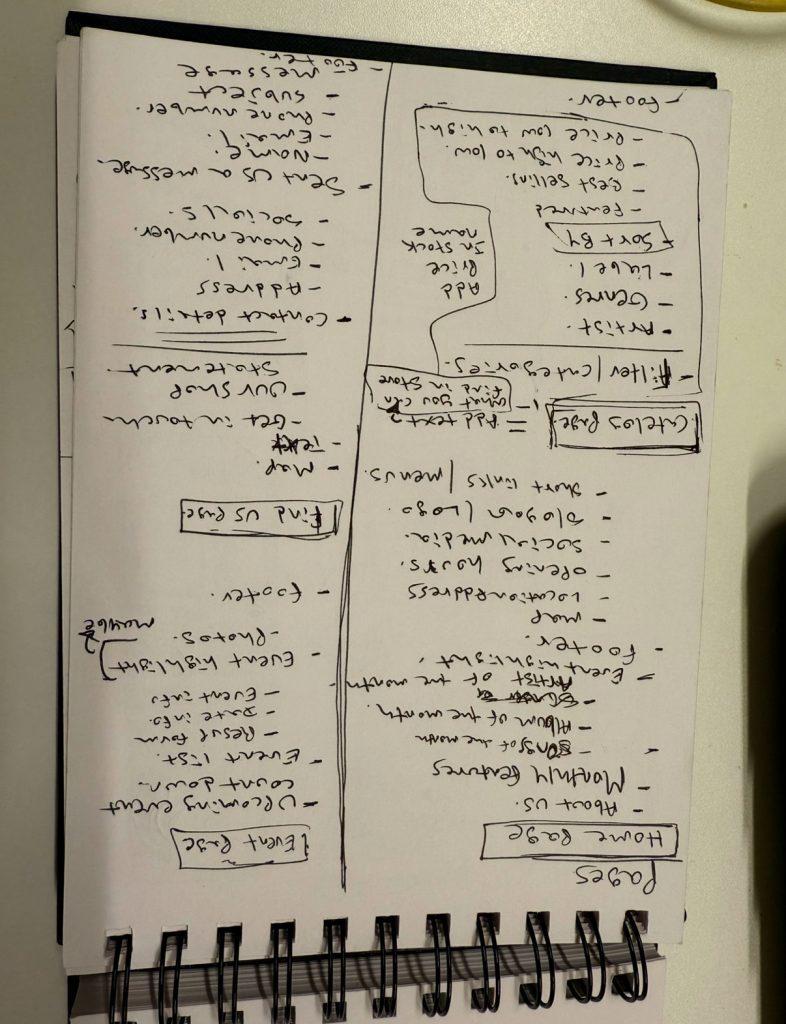 Pages
Home Page
- About us.
- Monthly features
- Songs of the month
- Album of the month.
- Artist of the month
- Event highlight.
- Footer.
- map
- Location Address
- opening hours.
- Social media.
- Slogan / Logo.
- Short links / menus.
Catelog Page. = Add text?
- what you can
find in store
- Filter / categories.
- Artist.
- Genres.
- Label.
- Sort By
- Featured
- Best selling.
- Price high to low.
- Price low to high.
Add
Price
In stock
name
- Footer.
Event Page
- Upcoming event
count down.
- Event list.
- Result form
- Date info.
- Event info
- Event highlight
- Photos. maybe?
- Footer.
Find us Page.
- Map.
- Text
- Get in touch
- Our shop
statement
- Contact details.
- Address
- Email
- Phone number.
- Socials.
- Sent us a message.
- Name.
- Email.
- Phone number.
- Subject
- Message
- Footer.